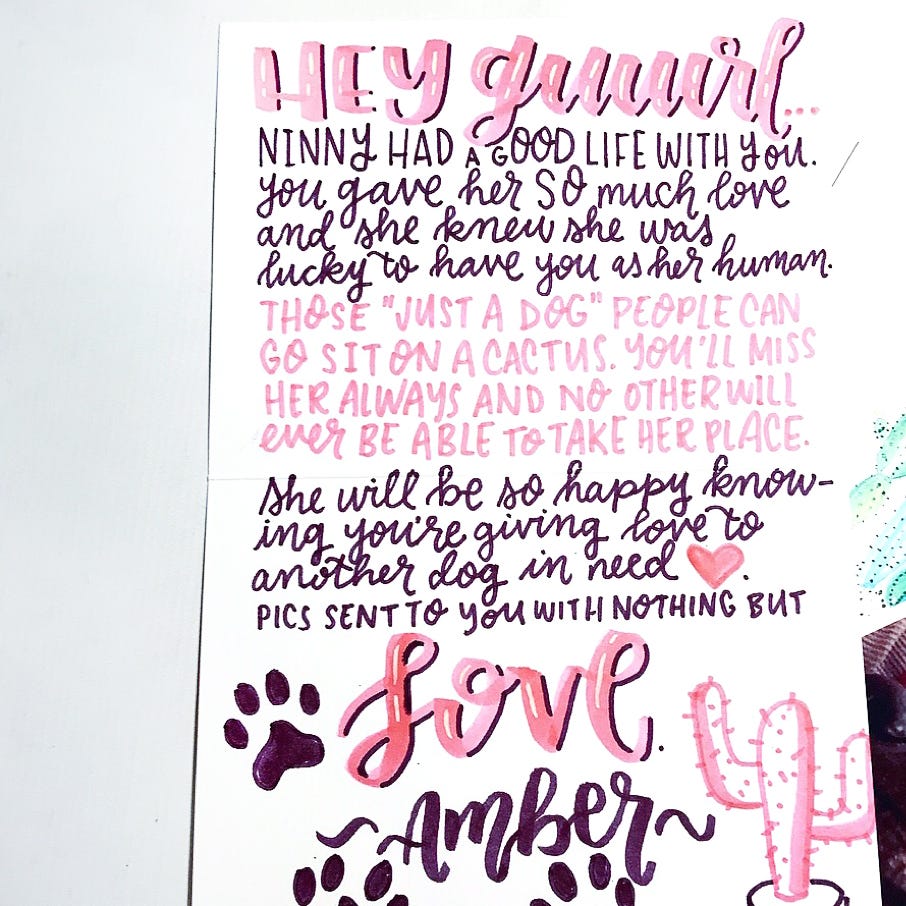 HEY guuurl...
NINNY HAD A GOOD LIFE WITH you.
you gave her SO much love
and she knew she was
lucky to have you as her human.
THOSE "JUST A DOG" PEOPLE CAN
GO SIT ON A CACTUS. YOU'LL MISS
HER ALWAYS AND NO OTHER WILL
ever BE ABLE TO TAKE HER PLACE.
she will be so happy know-
ing you're giving love to
another dog in need ♥.
PICS SENT TO you WITH NOTHING BUT
Love.
~Amber~